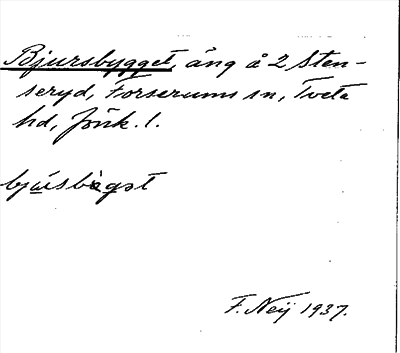 Bjursbygget, äng å 2 Sten-
seryd, Forserums sn, Tveta
hd, Jönk. l.
bjúsbỳgət
F. Neij 1937.